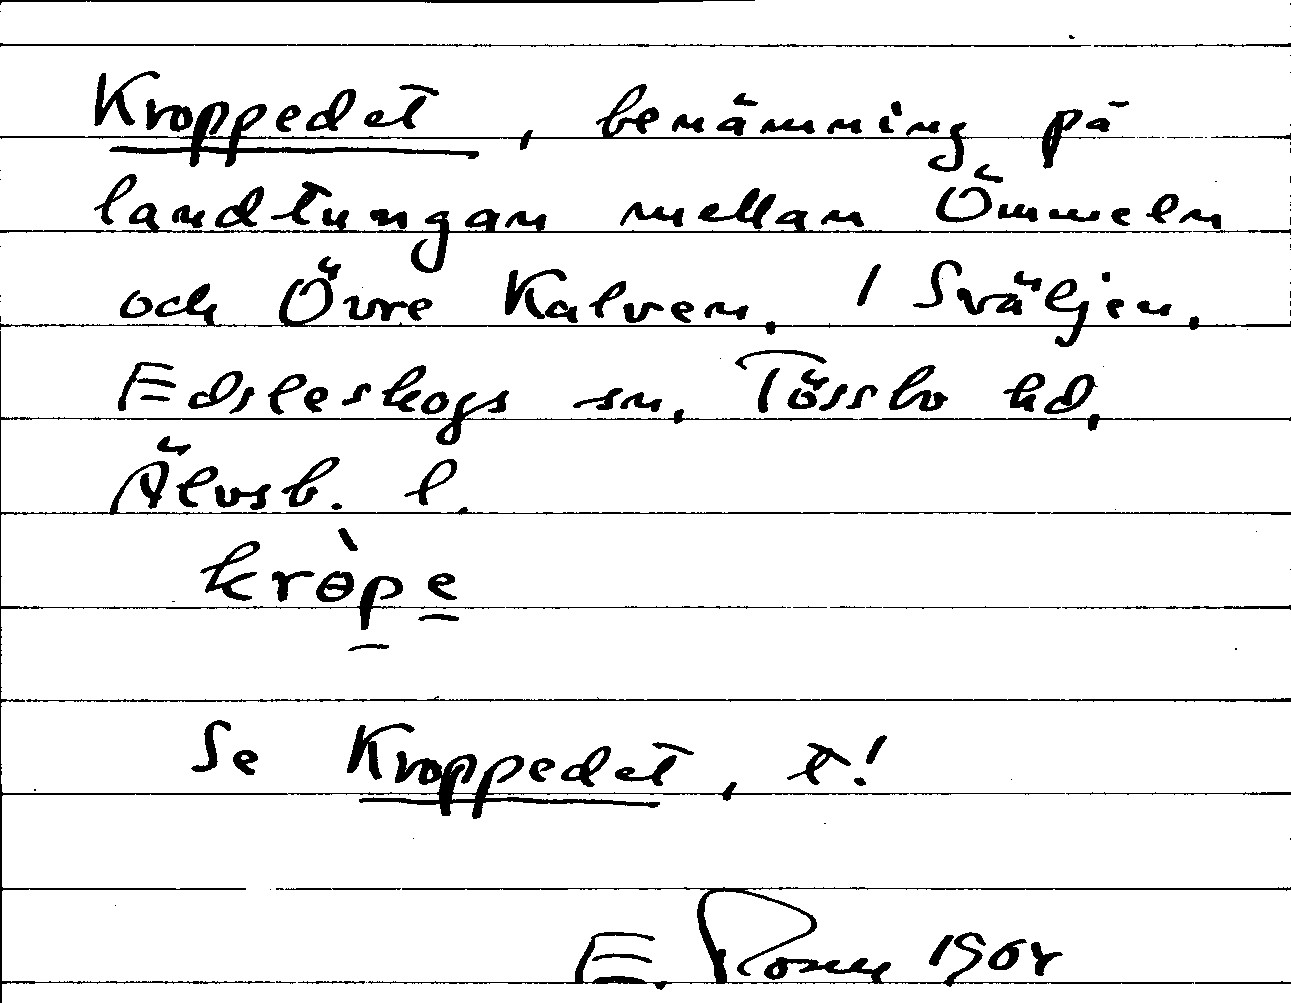 Kroppedet, benämning på
landtungan mellan Ömmeln
och Övre Kalven. / Sväljen.
Edsleskogs sn, Tössbo hd,
Älvsb. l.
krɵ̀pe
Se Kroppedet, t!
E.